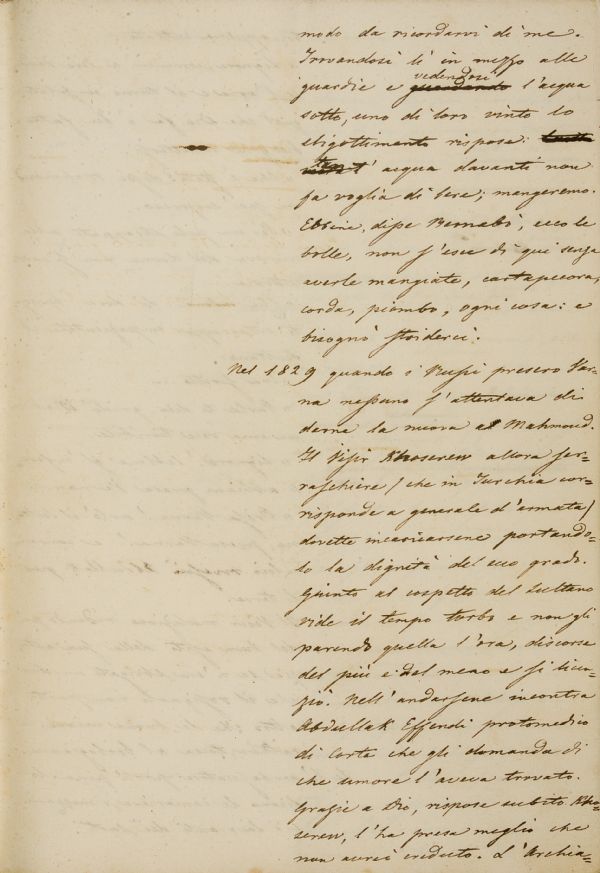 modo da ricordarvi di me.
Trovandosi lì in mezzo alle
guardie e vedendosi guardando l'acqua
sotto, uno di loro vinto lo
sbigottimento rispose:
l'acqua davanti non
fa voglia di bere; mangeremo.
Ebbene, disse Bernabò, ecco le
bolle, non s'esce di qui senza
averle mangiate, cartapecora,
corda, piombo, ogni cosa: e
bisognò
Nel 1829 quando i Russi presero Var-
na nessuno s'attentava di
darne la nuova a Mahmoud.
Il Visir Khosrew allora ser-
raschiere (che in Turchia cor-
risponde a generale d'armata)
dovette incaricarsene portando-
lo la dignità del suo grado.
Giunto al cospetto del Sultano
vide il tempo torbo e non gli
parendo quella l'ora, discorse
del più e del meno e si licen-
ziò. Nell'andarsene incontra
Abdullak Effendi protomedico
di Corte che gli domanda di
che umore l'aveva trovato.
Grazie a Dio, rispose subito Kho-
serew, l'ha presa meglio che
non avrei creduto. L'Archia-